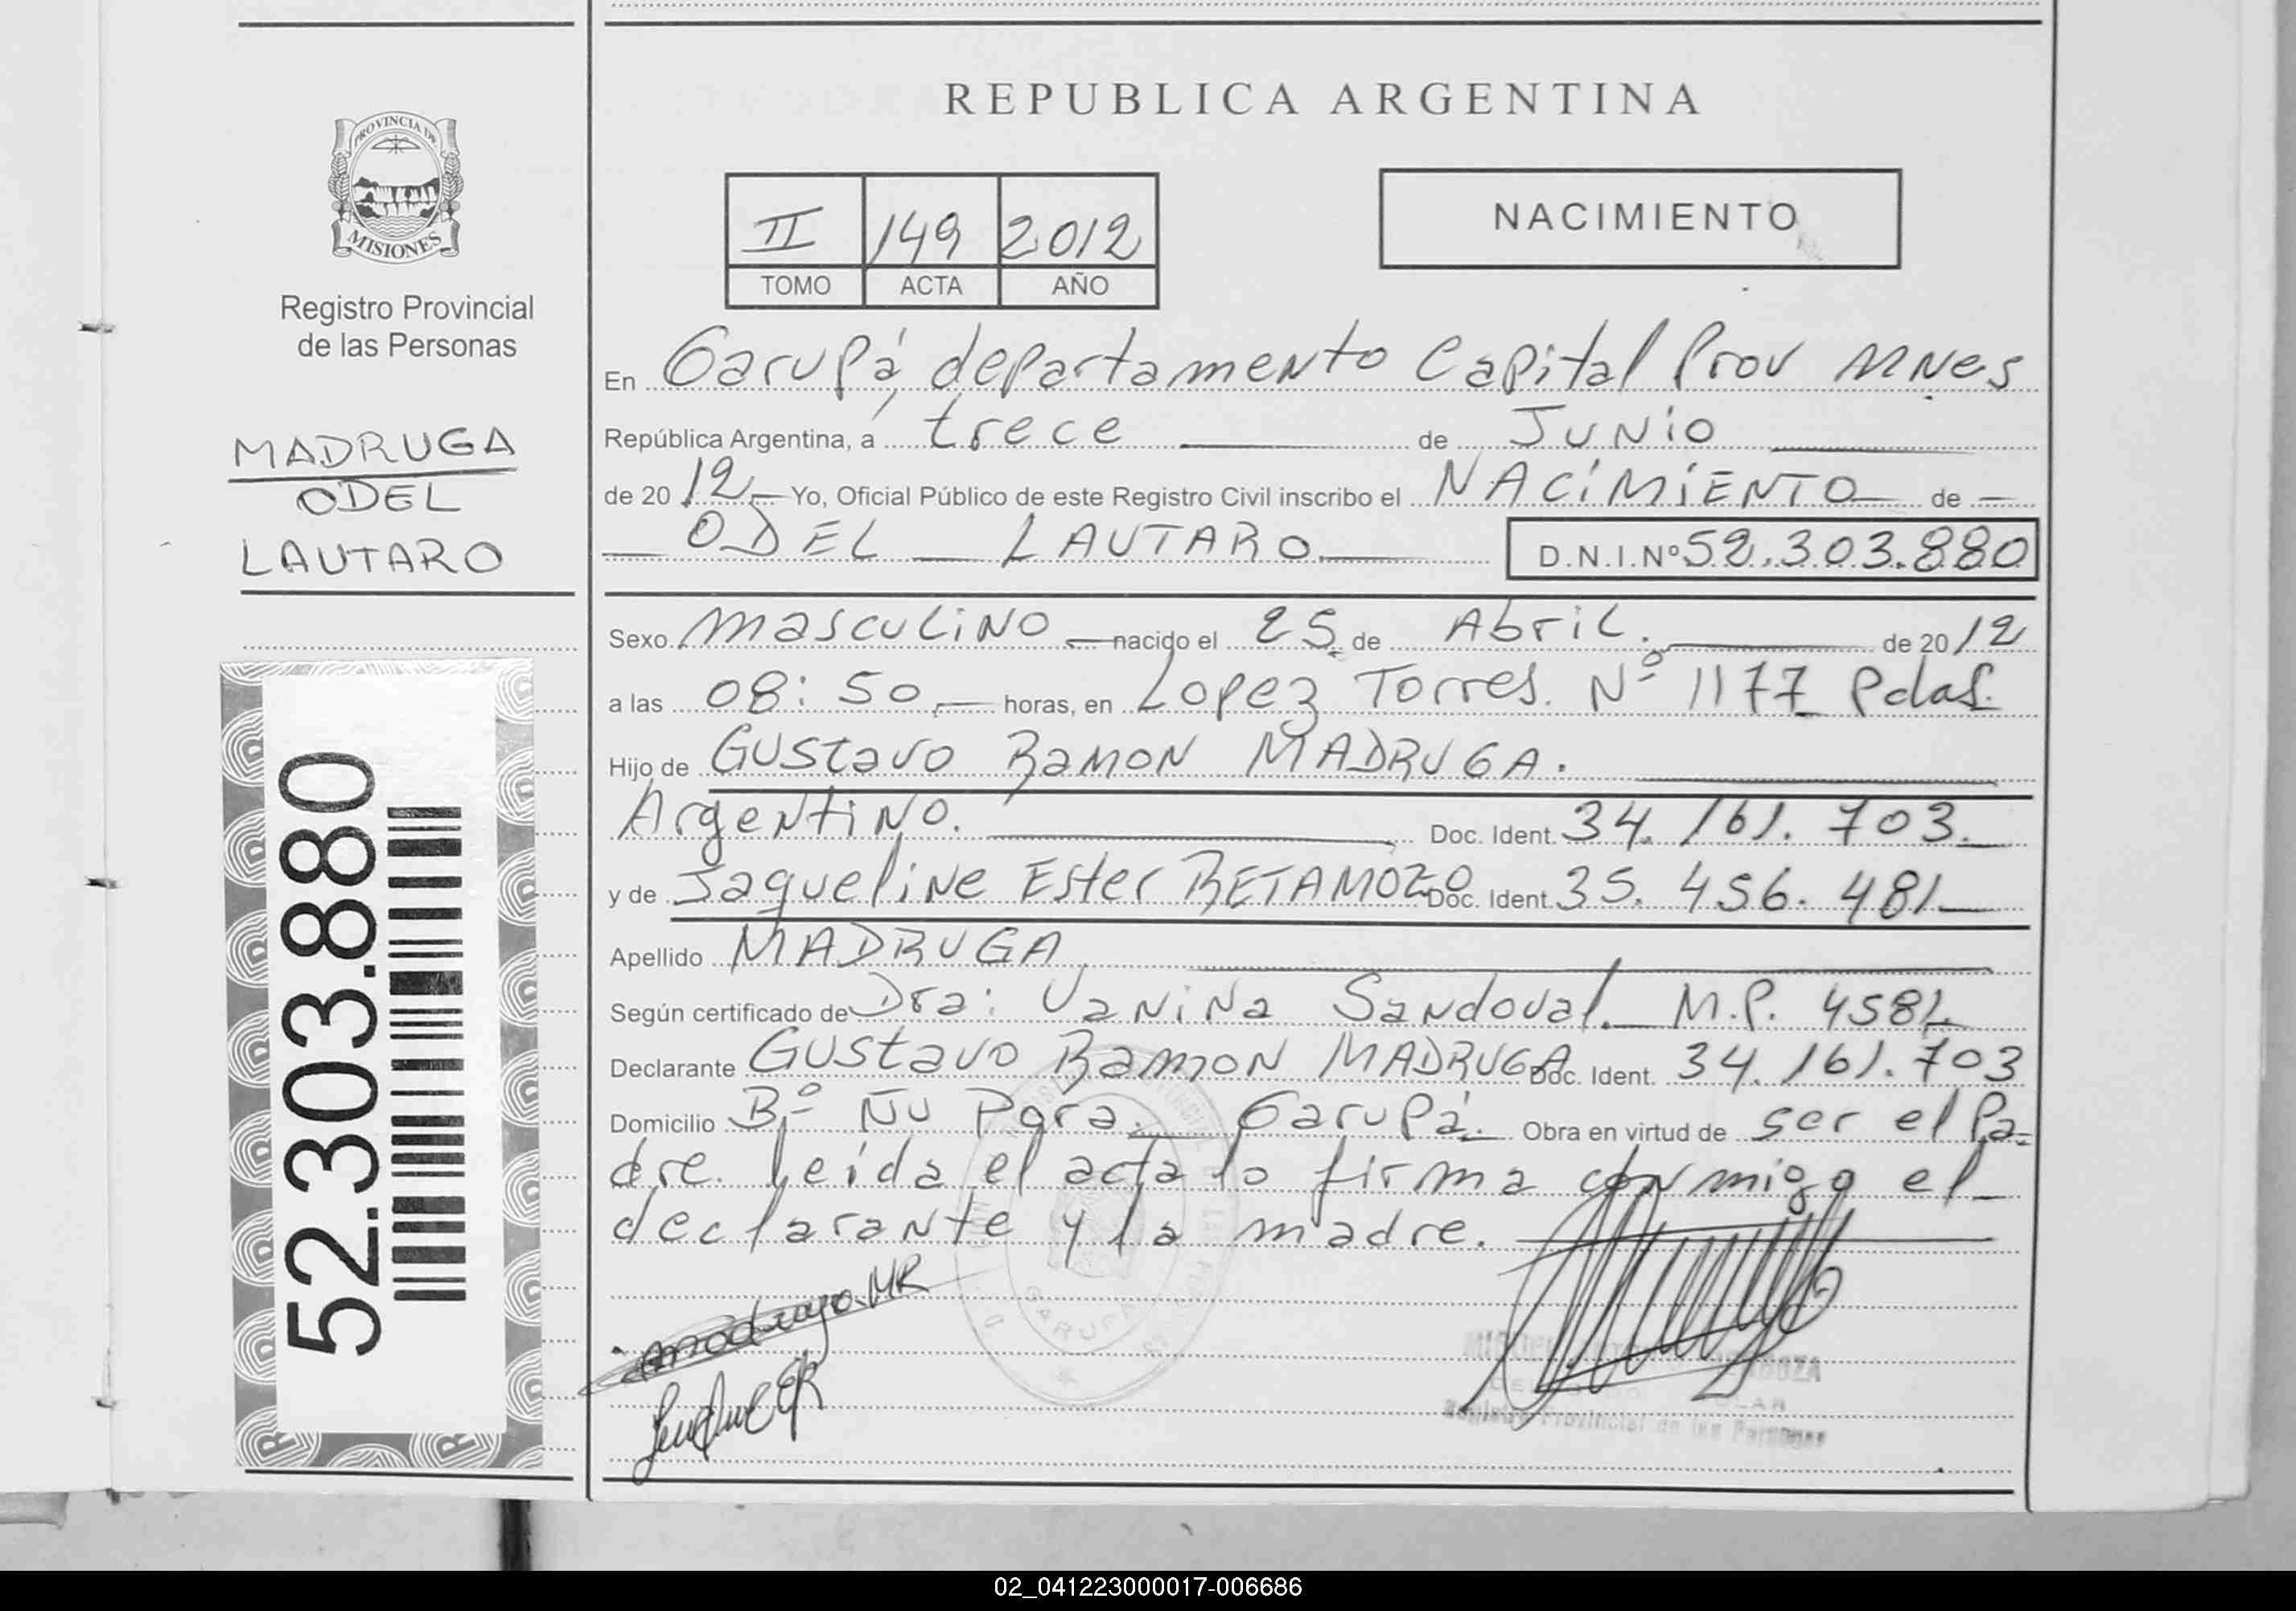 REPUBLICA ARGENTINA
PROVINCIA DE
MISIONES
Registro Provincial
de las Personas
MADRUGA
ODEL
LAUTARO
52.303.880
II 149 2012
TOMO ACTA AÑO
NACIMIENTO
En Garupá, departamento Capital Prov MNes
República Argentina, a trece de Junio
de 2012 Yo, Oficial Público de este Registro Civil inscribo el NACIMIENTO de
ODEL LAUTARO D.N.I.Nº 52.303.880
Sexo masculino nacido el 25 de Abril. de 2012
a las 08:50 horas, en Lopez Torres. Nº 1177 Pdas.
Hijo de Gustavo Ramon MADRUGA.
Argentino. Doc. Ident. 34.161.703.
y de Jaqueline Ester RETAMOZO Doc. Ident. 35.456.481
Apellido MADRUGA
Según certificado de Dra: Vanina Sandoval. M.P. 4582
Declarante Gustavo Ramon MADRUGA Doc. Ident. 34.161.703
Domicilio Bº Ñu Pora. Garupá. Obra en virtud de ser el Pa-
dre. Leida el acta lo firma conmigo el
declarante y la madre.
GARUPA
Registro Provincial de las Personas
02_041223000017-006686